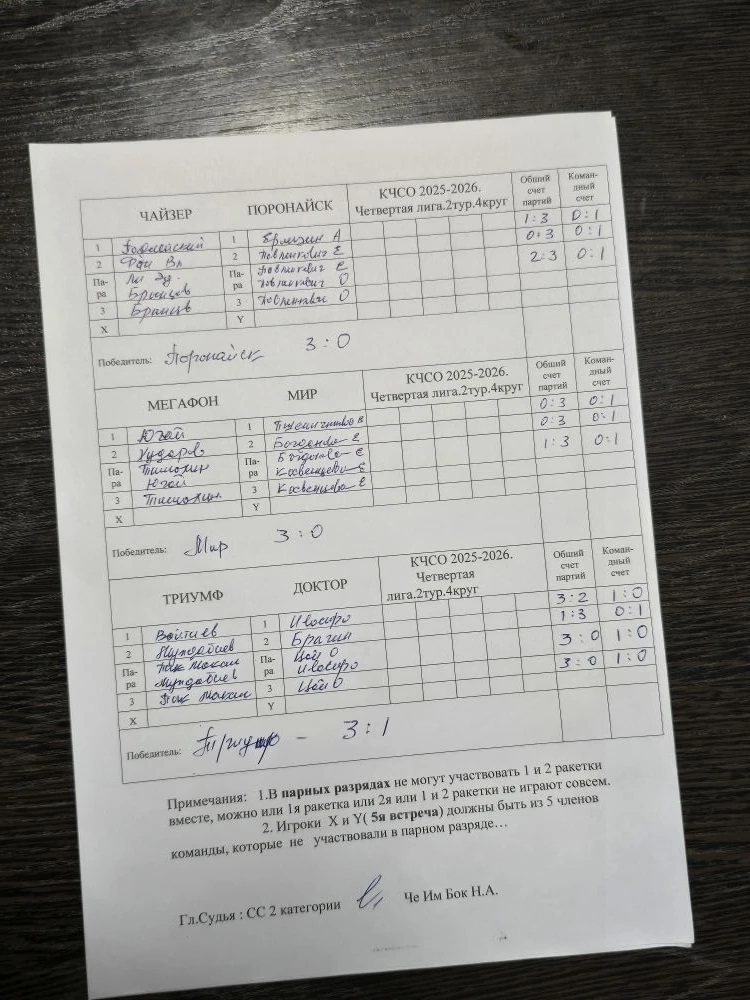 ЧАЙЗЕР ПОРОНАЙСК КЧСО 2025-2026. Четвертая лига.2тур.4круг Общий счет партий Коман-дный счет
1 1 Ерлизин А 1:3 0:1
2 Фан Вл 2 Павлинкович Е 0:3 0:1
Па-ра Ли Эд. Па-ра Павлинкович Е 2:3 0:1
Бранцов Павлинкович О
3 Бранцов 3 Павлинкович О
X Y
Победитель: Поронайск 3:0
МЕГАФОН МИР КЧСО 2025-2026. Четвертая лига.2тур.4круг Общий счет партий Коман-дный счет
1 Югай 1 0:3 0:1
2 Кударов 2 Богданова Е 0:3 0:1
Па-ра Тимохин Па-ра Богданова Е 1:3 0:1
Югай Косвенцева Е
3 Тимохин 3 Косвенцева Е
X Y
Победитель: Мир 3:0
ТРИУМФ ДОКТОР КЧСО 2025-2026. Четвертая лига.2тур.4круг Общий счет партий Коман-дный счет
1 Войтиев 1 3:2 1:0
2 2 Брагин 1:3 0:1
Па-ра Пак Па-ра Цой О 3:0 1:0
3 Пак 3 Цой О 3:0 1:0
X Y
Победитель: Триумф – 3:1
Примечания: 1.В парных разрядах не могут участвовать 1 и 2 ракетки
вместе, можно или 1я ракетка или 2я или 1 и 2 ракетки не играют совсем.
2. Игроки X и Y( 5я встреча) должны быть из 5 членов
команды, которые не участвовали в парном разряде…
Гл.Судья : СС 2 категории Че Им Бок Н.А.